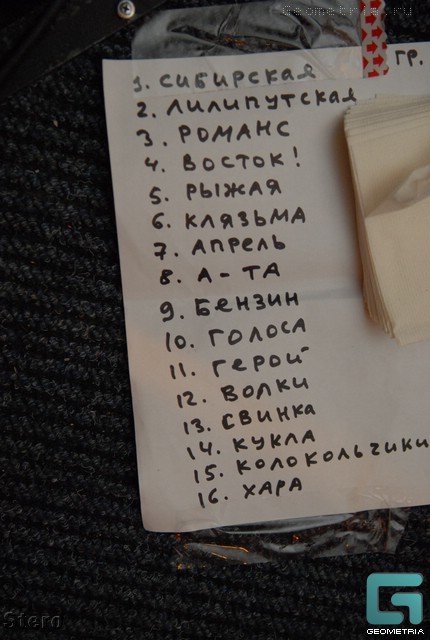 Geometria.ru
ГР.
1. СИБИРСКАЯ
2. ЛИЛИПУТСКАЯ
3. РОМАНС
4. ВОСТОК!
5. РЫЖАЯ
6. КЛЯЗЬМА
7. АПРЕЛЬ
8. А-ТА
9. БЕНЗИН
10. ГОЛОСА
11. ГЕРОЙ
12. ВОЛКИ
13. СВИНКА
14. КУКЛА
15. КОЛОКОЛЬЧИКИ
16. ХАРА
Stero
GEOMETRIA